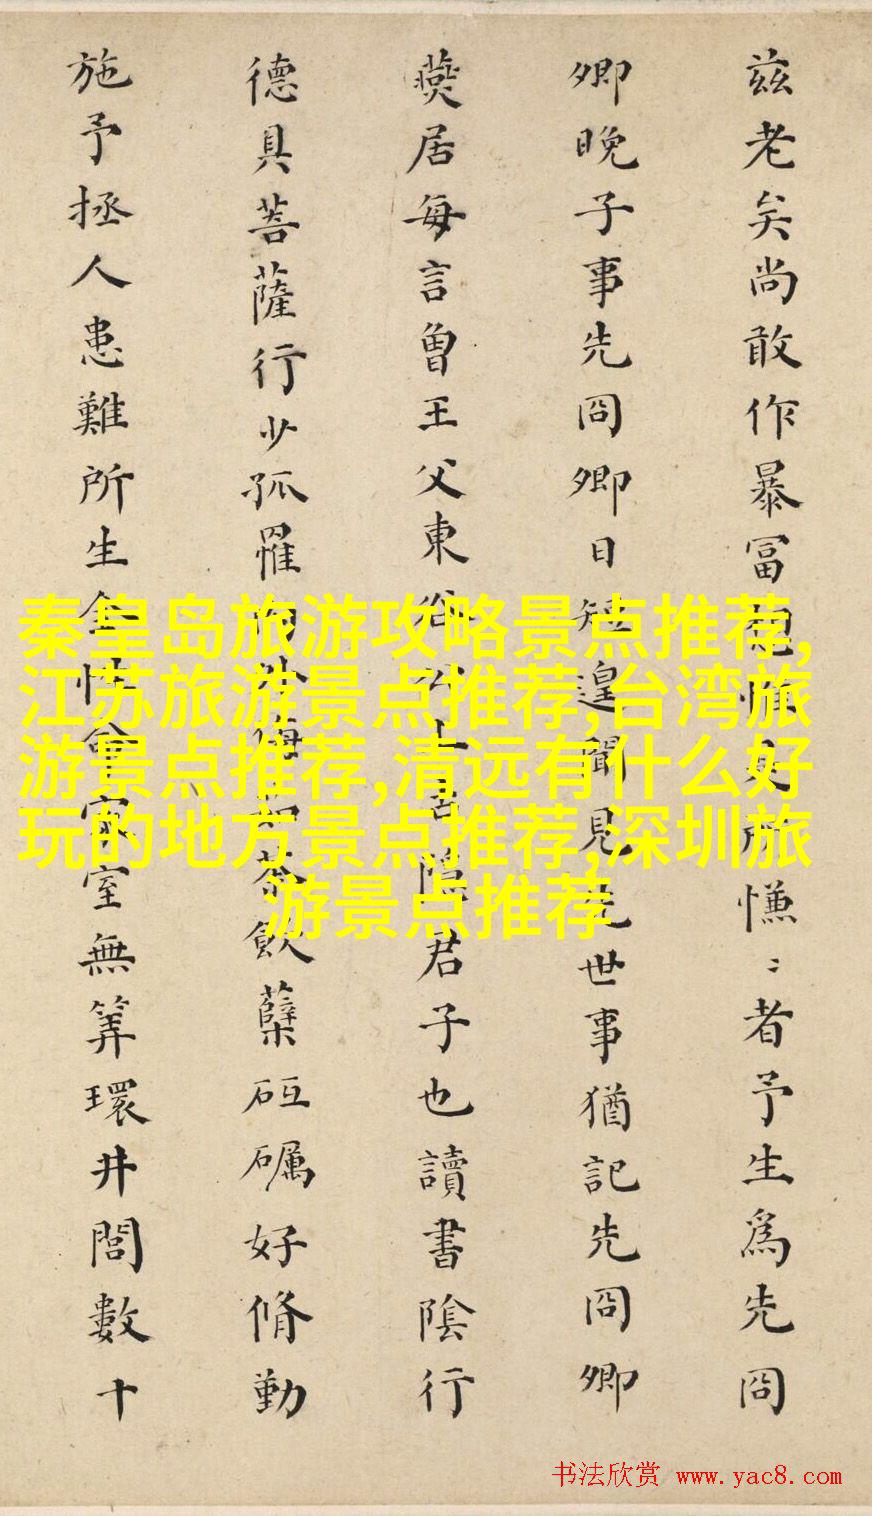 兹老矣尚敢作暴冨惟所慊〻者予生爲先冏
卿晚子事先冏卿日短遑聞見先世事猶記先冏卿
燕居每言曾王父東谷公隱君子也讀書陰行
德具菩薩行少孤罹外侮茹荼飲蘖砥礪好脩勤
施予拯人患難所生全性命家室無筭環井閭數十
秦皇岛旅游攻略景点推荐,
江苏旅游景点推荐,台湾旅
游景点推荐,清远有什么好
玩的地方景点推荐,深圳旅
游景点推荐
书法欣赏 www.yac8.com